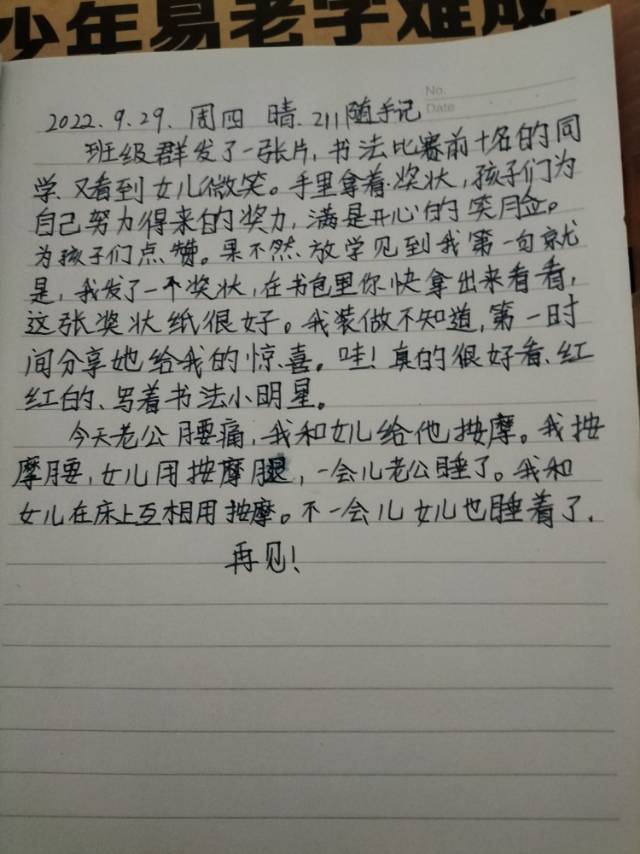 少年易老学难成
No.
Date
2022.9.29.周四 晴.211随手记
班级群发了一张片,书法比赛前十名的同
学.又看到女儿微笑。手里拿着奖状,孩子们为
自己努力得来的奖力,满是开心的笑脸。
为孩子们点赞。果不然.放学见到我第一句就
是,我发了一个奖状,在书包里你快拿出来看看,
这张奖状纸很好。我装做不知道,第一时
间分享她给我的惊喜。哇!真的很好看、红
红的、写着书法小明星。
今天老公腰痛,我和女儿给他按摩。我按
摩腰,女儿用按摩腿,一会儿老公睡了。我和
女儿在床上互相用按摩。不一会儿女儿也睡着了.
再见!